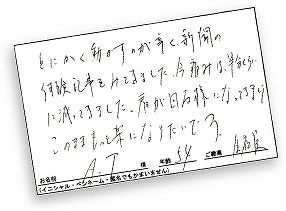 とにかく動かすのが辛く、新聞の
体験記事をみてきました。今痛みは、半分くらい
に減ってきました。肩が日石様になってきてますり
このままもって楽になりたいです。
お名前 A.T 様 年齢 54 ご職業
(イニシャル・ペンネーム・匿名でもかまいません)